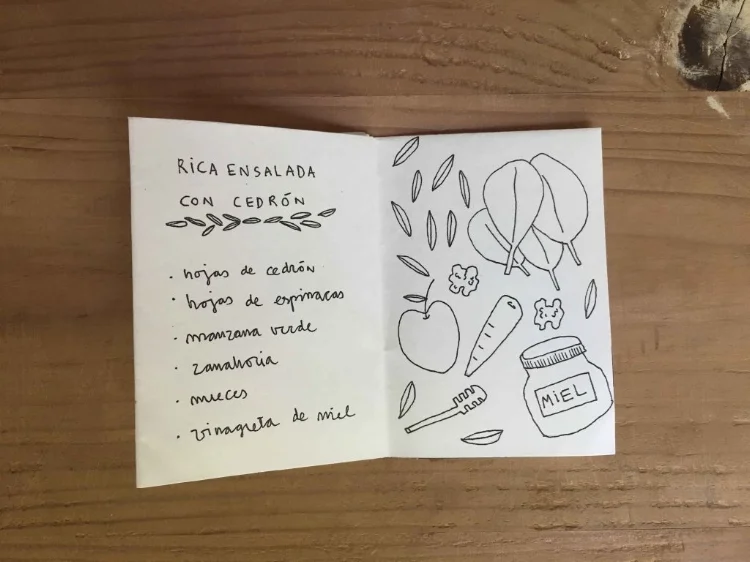 RICA ENSALADA
CON CEDRÓN
· hojas de cedrón
· hojas de espinacas
· manzana verde
· zanahoria
· nueces
· vinagreta de miel
MIEL